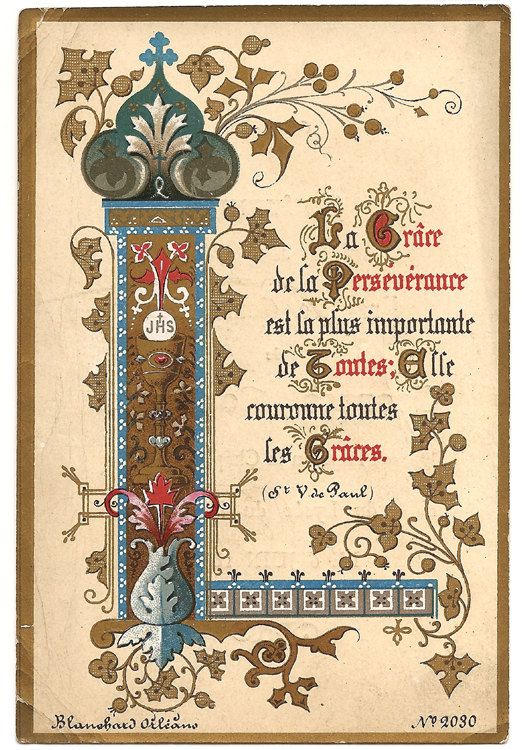 JHS
La Grâce
de la Persevérance
est la plus importante
de Toutes; Elle
couronne toutes
les Grâces.
(St V de Paul)
Blanchard Orléans
No 2030